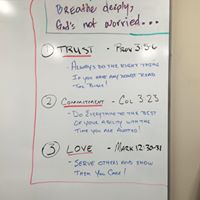 Breathe deeply,
God's not worried...
① TRUST - PROV 3:5-6
- ALWAYS DO THE RIGHT THING
IF YOU HAVE ANY DOUBT READ
THE BIBLE!
② COMMITMENT - COL 3:23
- DO EVERYTHING TO THE BEST
OF YOUR ABILITY WITH THE
TIME YOU ARE ALLOTED!
③ LOVE - MARK 12:30-31
- SERVE OTHERS AND SHOW
THEM YOU CARE!